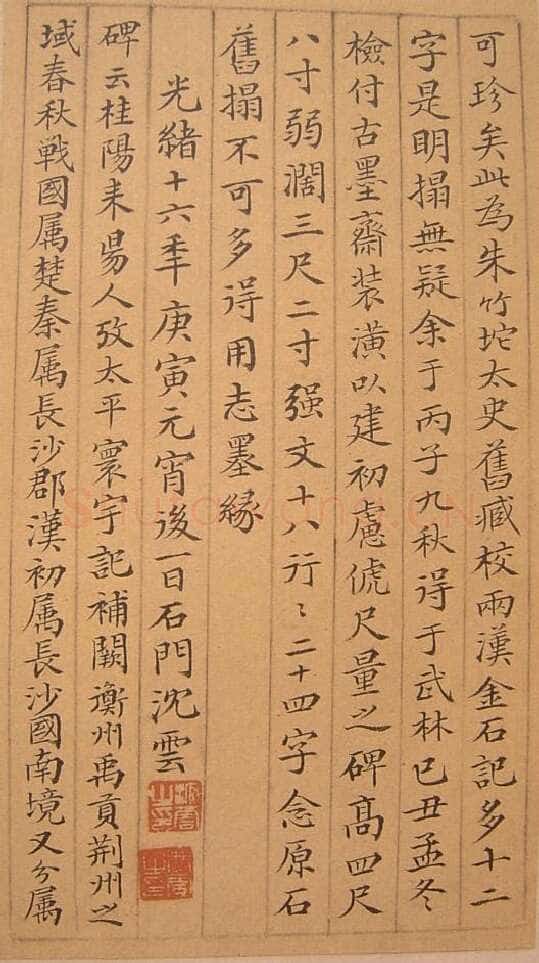 可珍矣此為朱竹垞太史舊臧校兩漢金石記多十二
字是明搨無疑余于丙子九秋得于武林已丑孟冬
檢付古墨齋装潢以建初慮俿尺量之碑高四尺
八寸弱濶三尺二寸强文十八行〻二十四字念原石
舊搨不可多得用志墨緣
光緒十六年庚寅元宵後一日石門沈雲
碑云桂陽耒昜人攷太平寰宇記補闕衡州禹貢荆州之
域春秋戰國属楚秦属長沙郡漢初属長沙國南境又分属